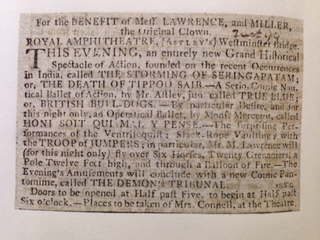 For the BENEFIT of Mess. LAWRENCE, and MILLER,
the Original Clown.
ROYAL AMPHITHEATRE, (ASTLEY's) Westminster Bridge.
THIS EVENING, an entirely new Grand Historical
Spectacle of Action, founded on the recent Occurrences
in India, called THE STORMING OF SERINGAPATAM;
or, THE DEATH OF TIPPOO SAIB.—A Serio-Comic Nau-
tical Ballet of Action, by Mr. Astley, jun. called TRUE BLUE;
or, BRITISH BULL-DOGS.—By particular Desire, and for
this night only, an Operatic Ballet, by Monf. Mercerot, called
HONI SOIT QUI MAL Y PENSE.—The surprising Per-
formances of the Ventriloquist; Slack-Rope Vaulting; with
the TROOP of JUMPERS; in particular, Mr. M. Lawrence will
(for this night only) fly over Six Horses, Twenty Grenadiers, a
Pole Twelve Feet high, and through a Balloon of Fire.—The
Evening's Amusements will conclude with a new Comic Pan-
tomime, called THE DEMON's TRIBUNAL.
Doors to be opened at Half past Five, to begin at Half past
Six o'clock.—Places to be taken of Mrs. Connell, at the Theatre.